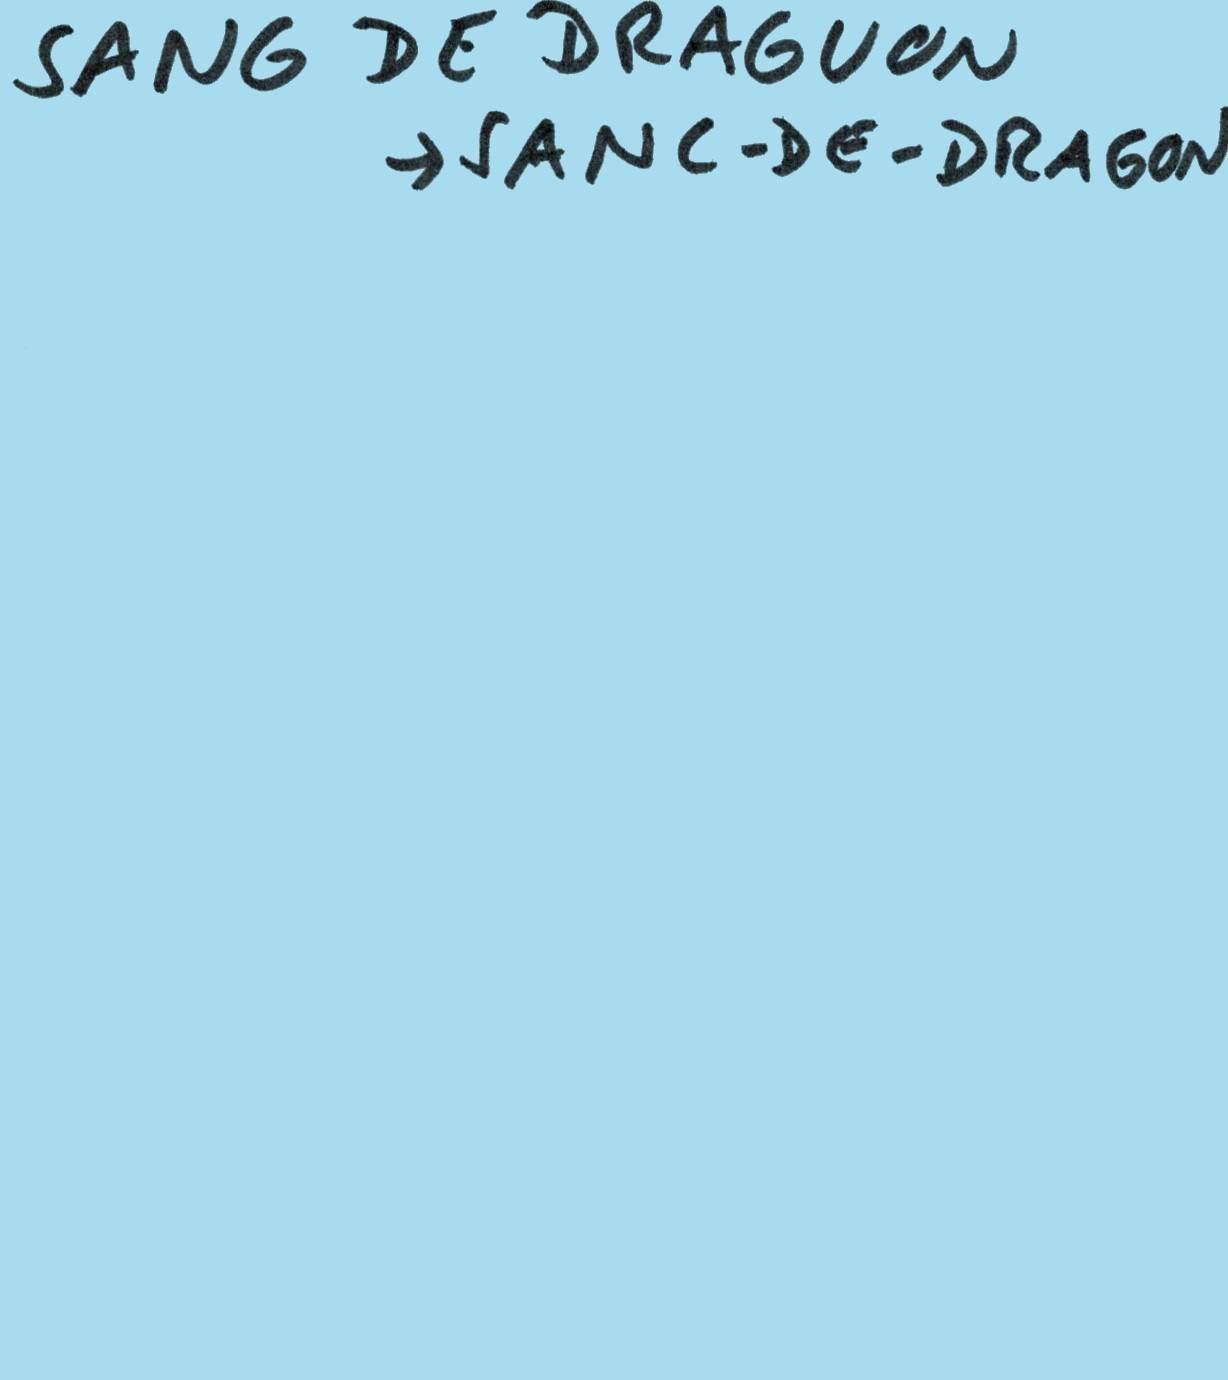 SANG DE DRAGUON
→ SANC-DE-DRAGON